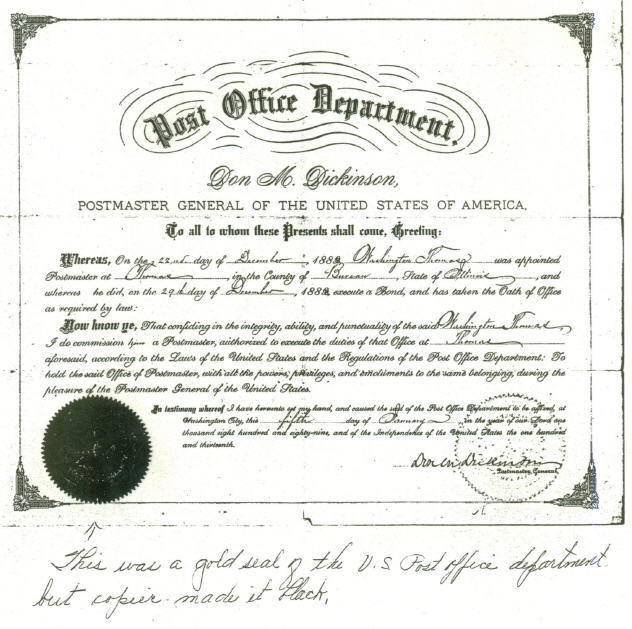 Post Office Department.
Don M. Dickinson,
POSTMASTER GENERAL OF THE UNITED STATES OF AMERICA.
To all to whom these Presents shall come, Greeting:
Whereas, On the 22nd day of December, 1888 Washington Thomas was appointed
Postmaster at Thomas, in the County of Bureau, State of Illinois, and
whereas he did, on the 29th day of December, 1888 execute a Bond, and has taken the Oath of Office
as required by law:
Now know ye, That confiding in the integrity, ability, and punctuality of the said Washington Thomas
I do commission him a Postmaster, authorized to execute the duties of that Office at Thomas
aforesaid, according to the Laws of the United States and the Regulations of the Post Office Department: To
hold the said Office of Postmaster, with all the powers, privileges, and emoluments to the same belonging, during the
pleasure of the Postmaster General of the United States.
In testimony whereof I have hereunto set my hand, and caused the seal of the Post Office Department to be affixed, at
Washington City, this fifth day of January in the year of our Lord one
thousand eight hundred and eighty-nine, and of the Independence of the United States the one hundred
and thirteenth.
Don M. Dickinson
Postmaster General
This was a gold seal of the U.S Post office department
but copier made it black.